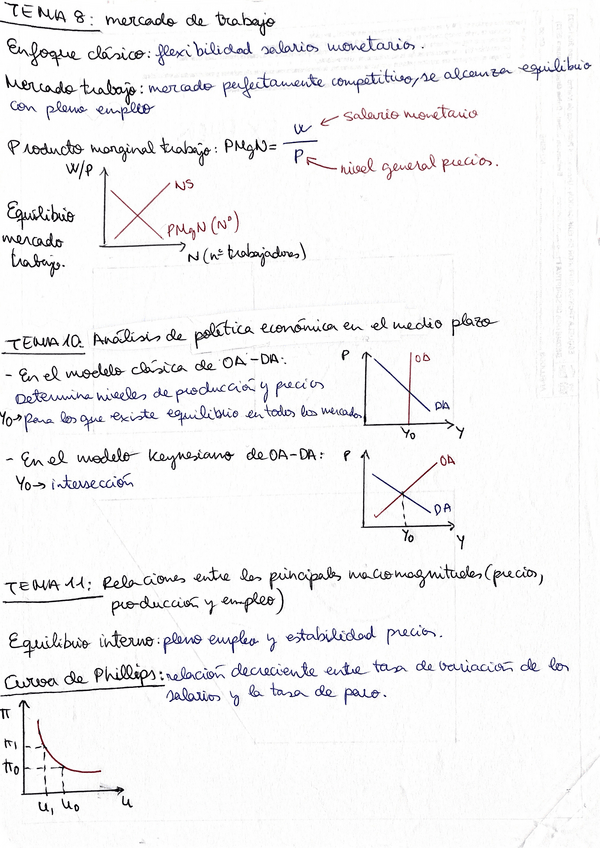 TEMA 8: mercado de trabajo
Enfoque clásico: flexibilidad salarios monetarios.
Mercado trabajo: mercado perfectamente competitivo, se alcanza equilibrio
con pleno empleo
Producto marginal trabajo: PMgN = W / P
← salario monetario
nivel general precios.
W/P
NS
PMgN (Nº)
N (nº trabajadores)
Equilibrio
mercado
trabajo.
TEMA 10: Análisis de política económica en el medio plazo
- En el modelo clásica de OA-DA:
Determina niveles de producción y precios
Y0→ para los que existe equilibrio en todos los mercados
P
OA
DA
Y0
Y
- En el modelo Keynesiano de OA-DA:
Y0→ intersección
P
OA
DA
Y0
Y
TEMA 11: Relaciones entre las principales macromagnitudes (precios,
producción y empleo)
Equilibrio interno: pleno empleo y estabilidad precios.
Curva de Phillips: relación decreciente entre tasa de variación de los
salarios y la tasa de paro.
π
π1
π0
u1 u0
u